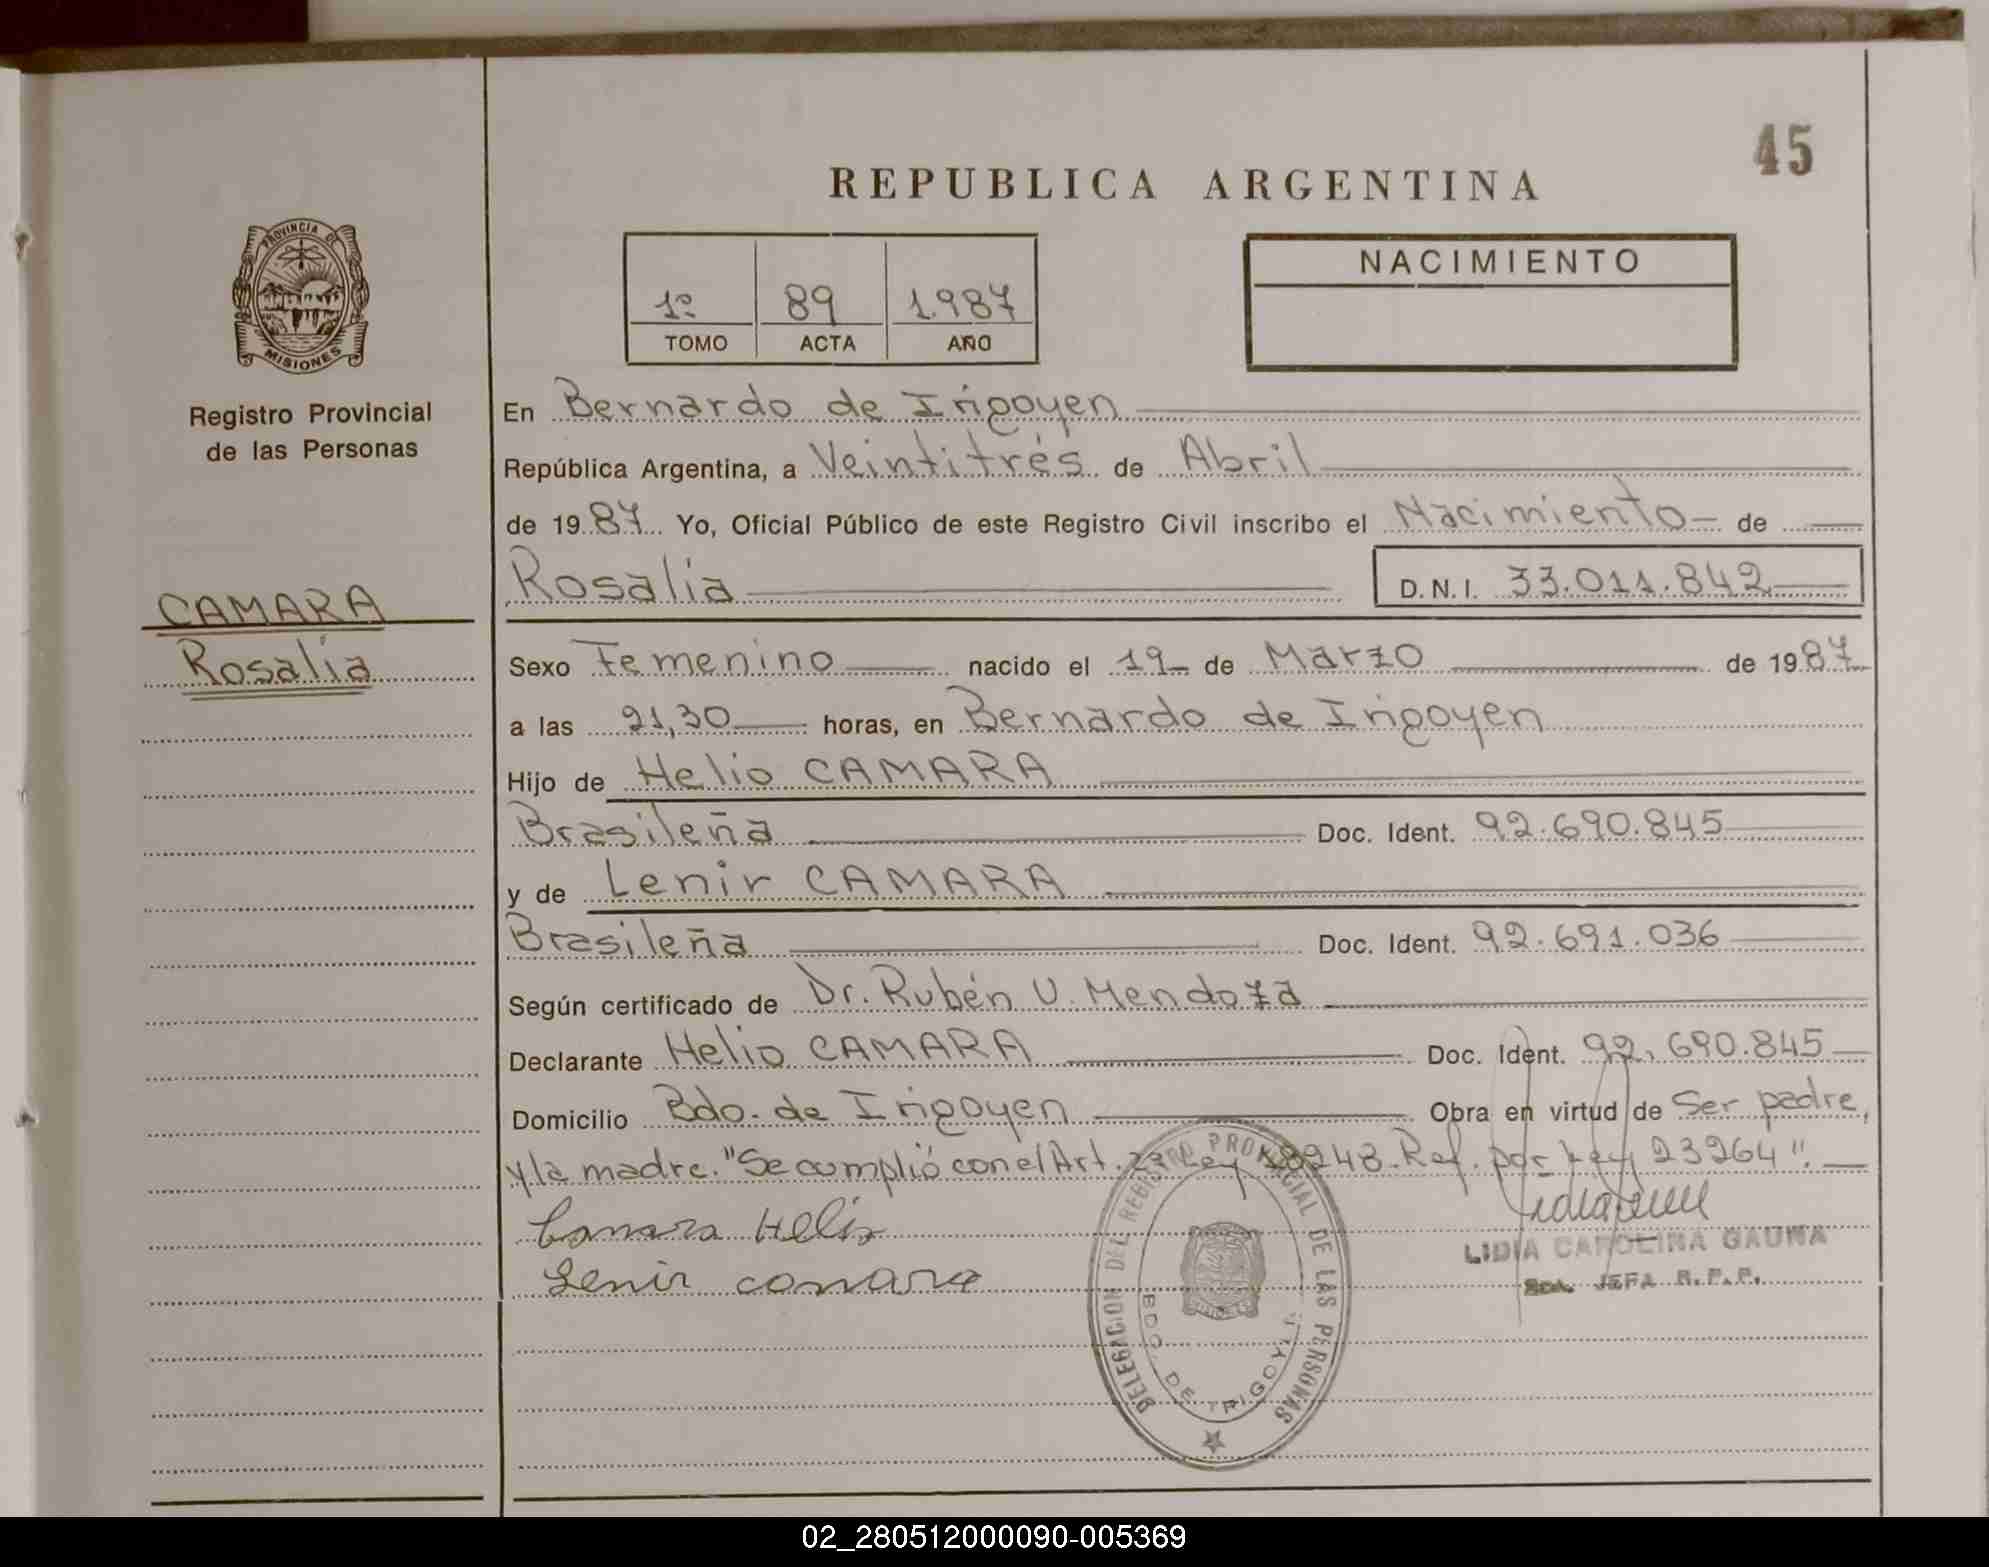 45
REPUBLICA ARGENTINA
PROVINCIA DE
MISIONES
Registro Provincial
de las Personas
1º 89 1.987
TOMO ACTA AÑO
NACIMIENTO
En Bernardo de Irigoyen
República Argentina, a Veintitrés de Abril
de 19 87 Yo, Oficial Público de este Registro Civil inscribo el Nacimiento de
Rosalia D.N.I. 33.011.842
CAMARA
Rosalia
Sexo Femenino nacido el 19 de Marzo de 19 87
a las 21,30 horas, en Bernardo de Irigoyen
Hijo de Helio CAMARA
Brasileña Doc. Ident. 92.690.845
y de Lenir CAMARA
Brasileña Doc. Ident. 92.691.036
Según certificado de Dr. Rubén U. Mendoza
Declarante Helio CAMARA Doc. Ident. 92.690.845
Domicilio Bdo. de Irigoyen Obra en virtud de Ser padre,
y la madre. "Se cumplió con el Art. Ley 18248. Ref. por Ley 23264".
Camara Helio
Lenir camara
LIDIA CAROLINA GAUNA
JEFA R.P.P.
DELEGACION DEL REGISTRO PROVINCIAL DE LAS PERSONAS
BDO. DE IRIGOYEN
02_280512000090-005369